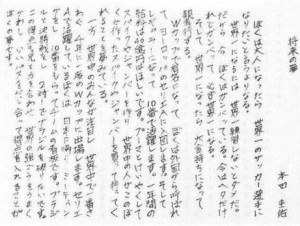 将来の夢
本田 圭佑
ぼくは大人になったら 世界一のサッカー選手に
なりたいと言うよりなる。
世界一になるには 世界一練習しないとダメだ。
だから 今 ぼくはガンバっている。今はヘタだけ
れどガンバって 必ず世界一になる。
そして 世界一になったら 大金持ちになって
親孝行する。
Wカップで有名になって ぼくは外国から呼ばれ
て ヨーロッパのセリエAに入団します。そして
レギュラーになって 10番で活躍します。一年間の
給料は40億円はほしいです。プーマとけいやくして
スパイクやジャンバーを作り 世界中の人が このぼ
くが作ったスパイクやジャンバーを買って行ってく
れることを夢みている。
一方 世界中のみんなが注目し 世界中で一番さ
わぐ 4年に一度のWカップに出場します。セリエ
Aで活躍しているぼくは 日本に帰り ミーティン
グをし 10番をもらってチームの看板です。ブラジ
ルと決勝戦をし 2対1でブラジルを破りたいです。
この得点も兄と力を合わせ 世界の強ごうをうまく
かわし いいパスをだし合って得点を入れることが
ぼくの夢です。